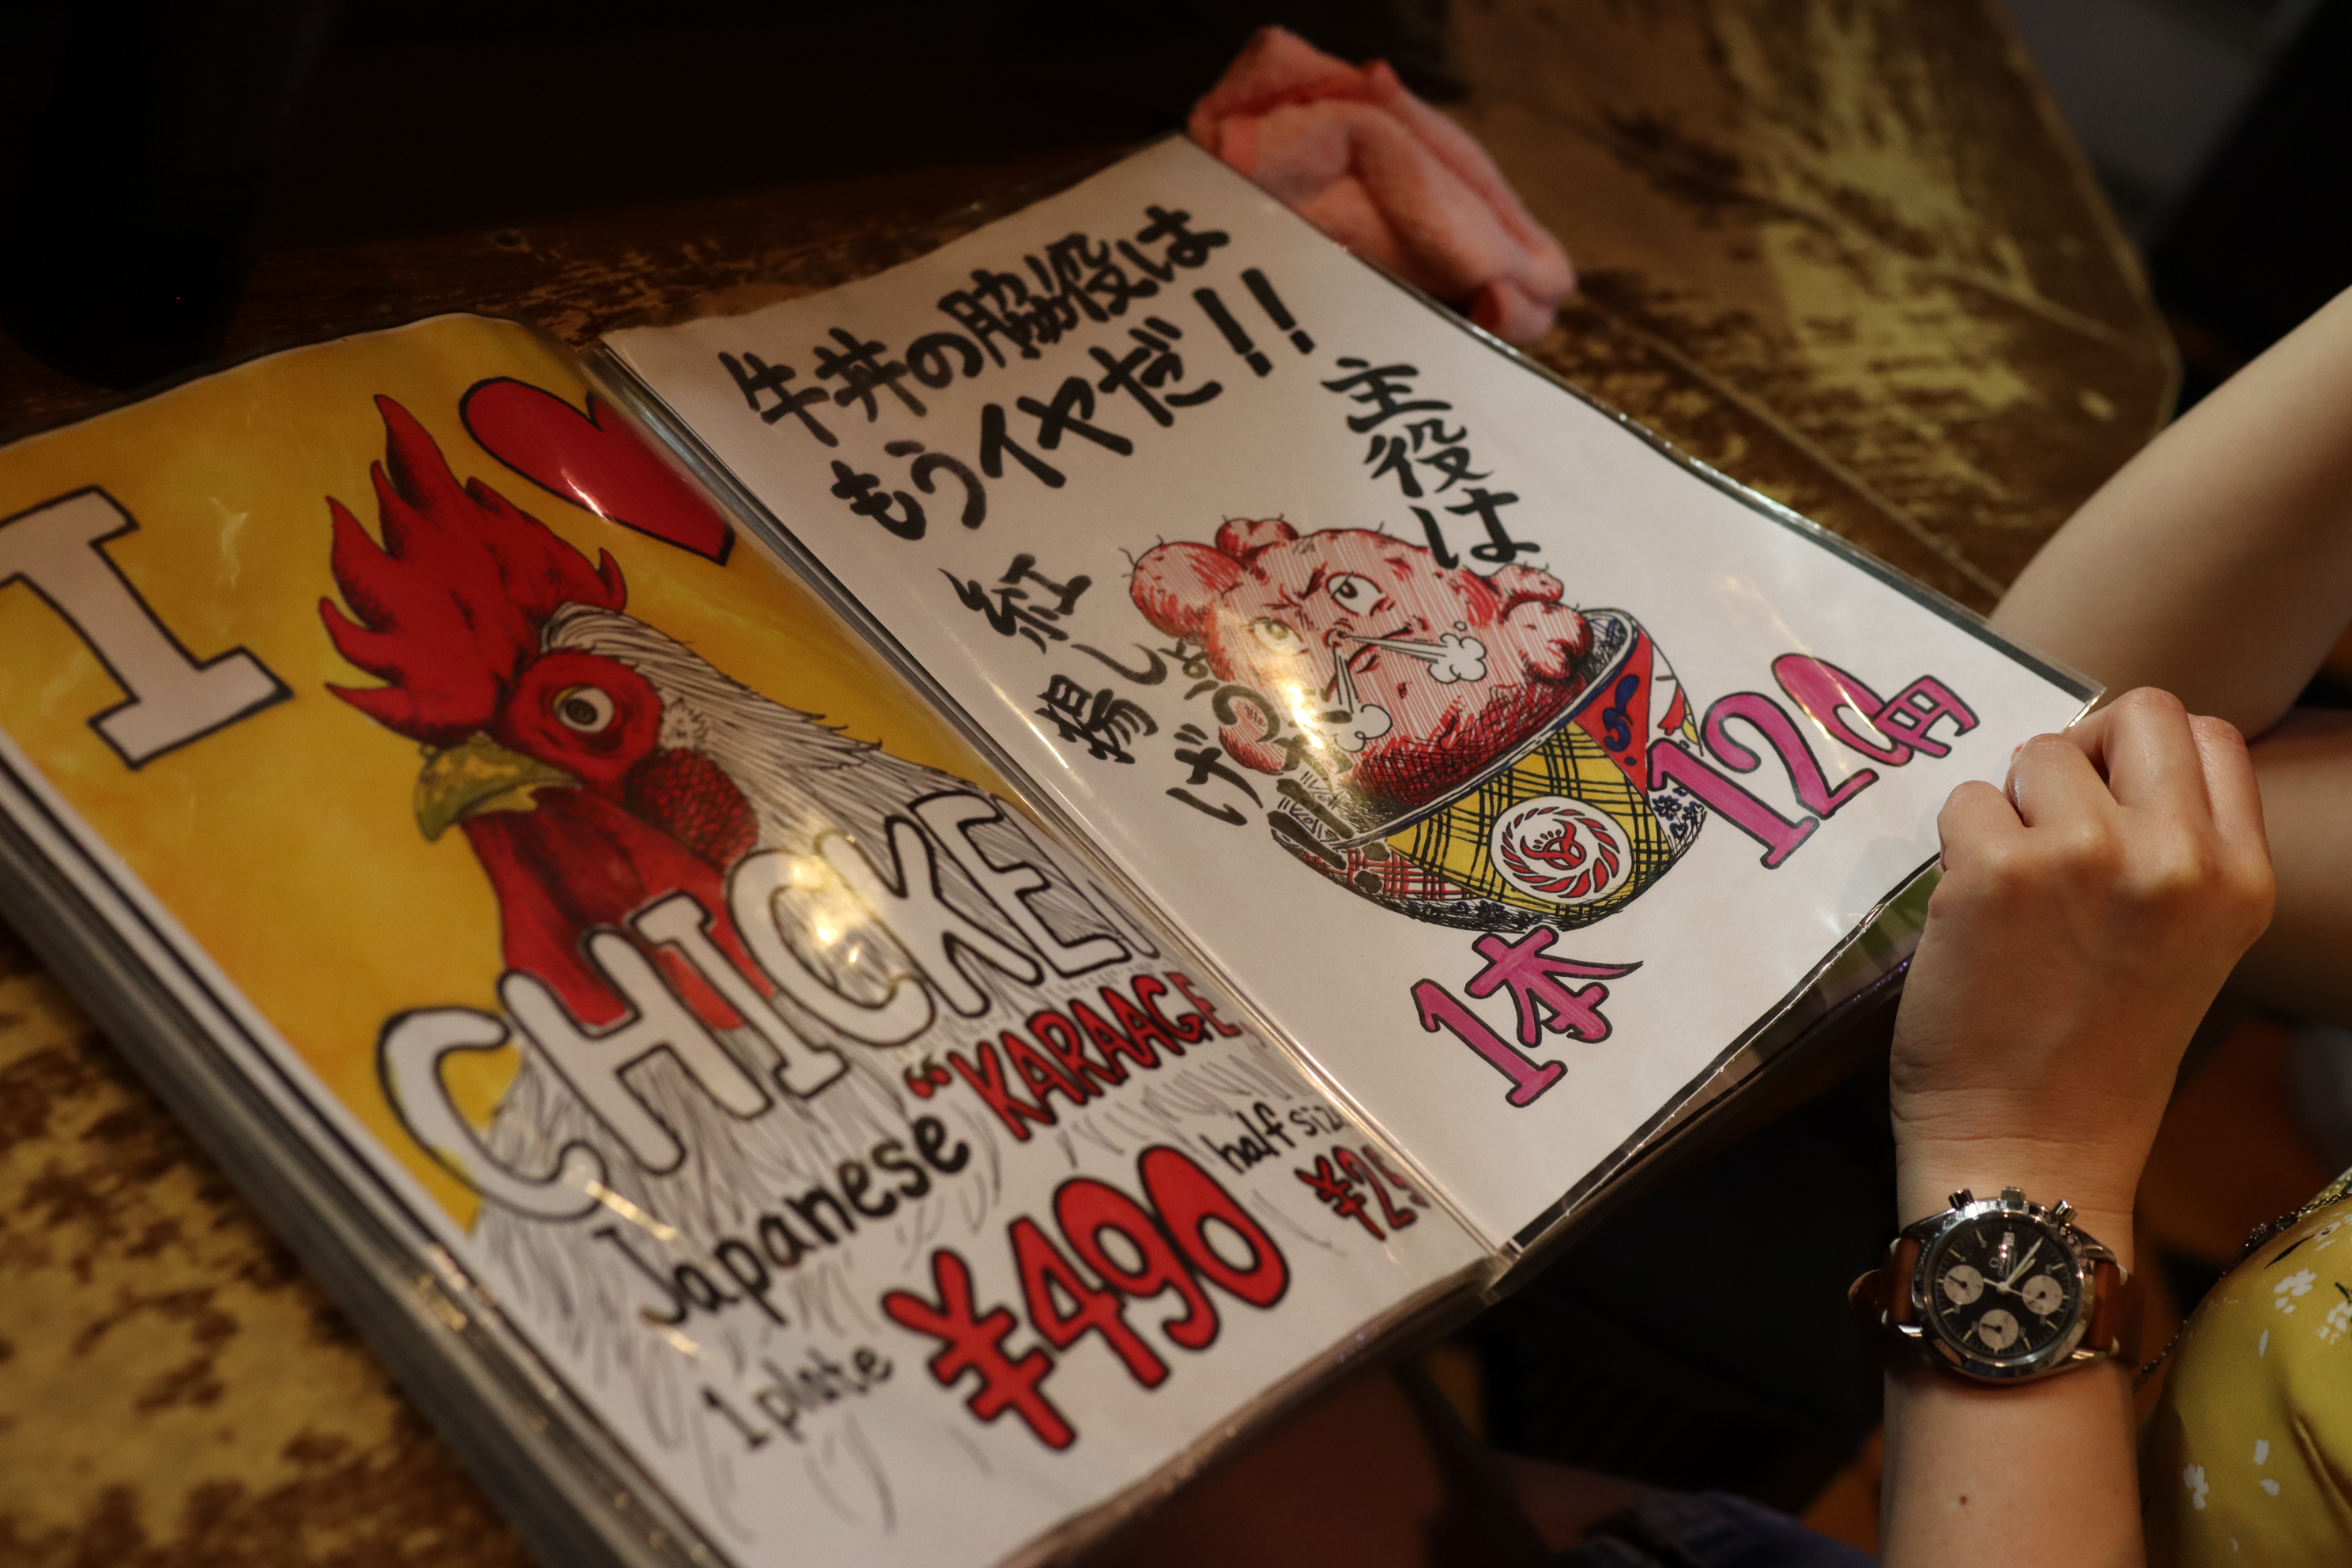 I
CHICKEN
Japanese "KARAAGE
1 plate ¥490
half siz
¥2
牛丼の脇役は
もうイヤだ!!
主役は
紅しょうが
揚げ
1本
120円